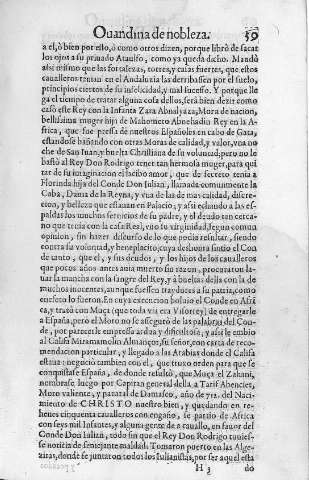 Ouandina de nobleza. 39
a el, ò bien por ello, ò como otros dizen, porque librò de sacar
los ojos a su priuado Ataulfo, como ya queda dicho. Mandò
assi mismo que las fortalezas, torres, y casas fuertes, que estos
caualleros tenian en el Andaluzia las derribassen por el suelo,
principios ciertos de su infelicidad, y mal sucesso. Y porque lle
ga el tiempo de tratar alguna cosa dellos, serà bien dezir como
casò este Rey con la Infanta Zara Abnalyaza, Mora de nacion,
bellissima muger hija de Mahometo Abnehadin Rey en la A-
frica, que fue presa de nuestros Españoles en cabo de Gata,
estandose bañando con otras Moras de calidad, y valor, vna no
che de San Iuan, y buelta Christiana de su voluntad, pero no le
bastò al Rey Don Rodrigo tener tan hermosa muger, para qui
tar de su imaginacion el lasciuo amor, que de secreto tenia a
Florinda hija del Conde Don Iulian, llamada comunmente la
Caba, Dama de la Reyna, y vna de las de mas calidad, discre-
cion, y belleza que estauan en Palacio; y assi echando a las es-
paldas los muchos seruicios de su padre, y el deudo tan cerca-
no que tenia con la casa Real, vsò su virginidad, segun comun
opinion, sin hazer discurso de lo que podia resultar, siendo
contra su voluntad, y beneplacito, cuya deshonra sintio el Con
de tanto, que el, y sus deudos, y los hijos de los caualleros
que pocos años antes auia muerto sin razon, procuraron la-
uar la mancha con la sangre del Rey, y à bueltas della con la de
muchos inocentes, aunque fuessen traydores a su patria, como
en efeto lo fueron. En cuya execucion boluio el Conde en Afri
ca, y tratò con Muça (que toda via era Visorrey) de entregarle
a España, pero el Moro no se assegurò de las palabras del Con-
de, por parecerle empressa ardua y dificultosa, y assi le embio
al Califa Miramamolin Almançor, su señor, con carta de reco-
mendacion particular, y llegado a las Arabias donde el Califa
estaua, negociò tambien con el, que truxo orden para que se
conquistasse España, de donde resultò, que Muça el Zahani,
nombrasse luego por Capitan general della a Tarif Abenciet,
Moro valiente, y natural de Damasco, año de 712. del Naci-
miento de CHRISTO nuestro bien, y quedando en re-
henes cinquenta caualleros con engaño, se partio de Africa
con seys mil Infantes, y alguna gente de a cauallo, en fauor del
Conde Don Iulian, todo sin que el Rey Don Rodrigo tuuies-
se noticia de semejante maldad. Tomaron puerto en las Alge-
ziras, donde se juntaron todos los Iulianistas, por ser aquel esta
H 3 do